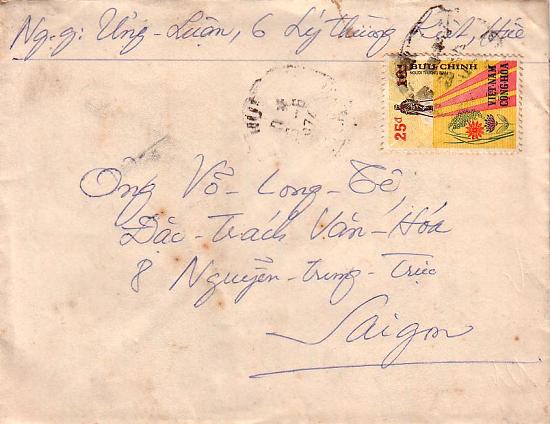 Ng. g: Ưng-Luận, 6 Lý thường Kiệt, Huế
BƯU CHÍNH
VIỆT-NAM
CỘNG-HÒA
25đ
HUẾ
Ông Võ-Long-Tê
Đặc-trách Văn-Hóa
8 Nguyễn-trung-Trực
Saigon